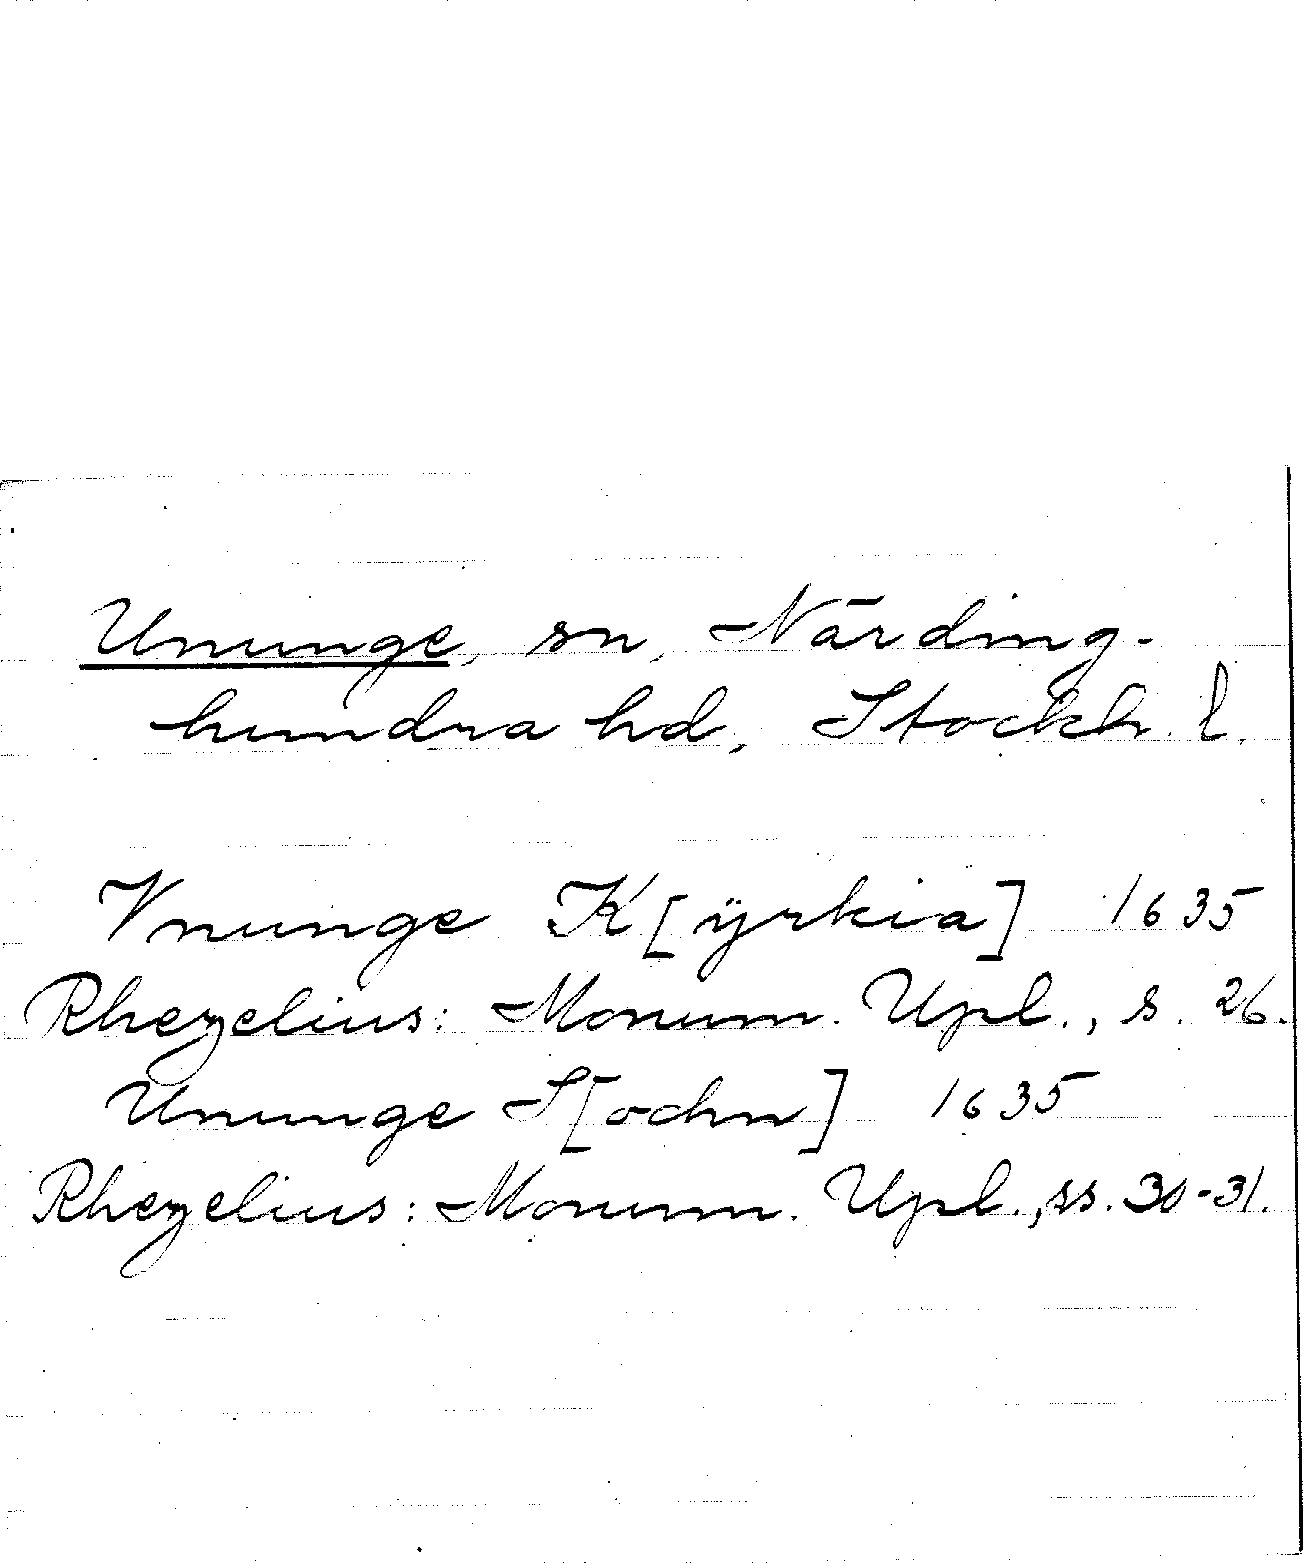 Ununge, sn, Närding-
hundra hd, Stockh. l.
Vnunge K[ÿrkia] 1635
Rhezelius: Monum. Upl., s. 26.
Ununge S[ochn] 1635
Rhezelius: Monum. Upl., ss. 30-31.